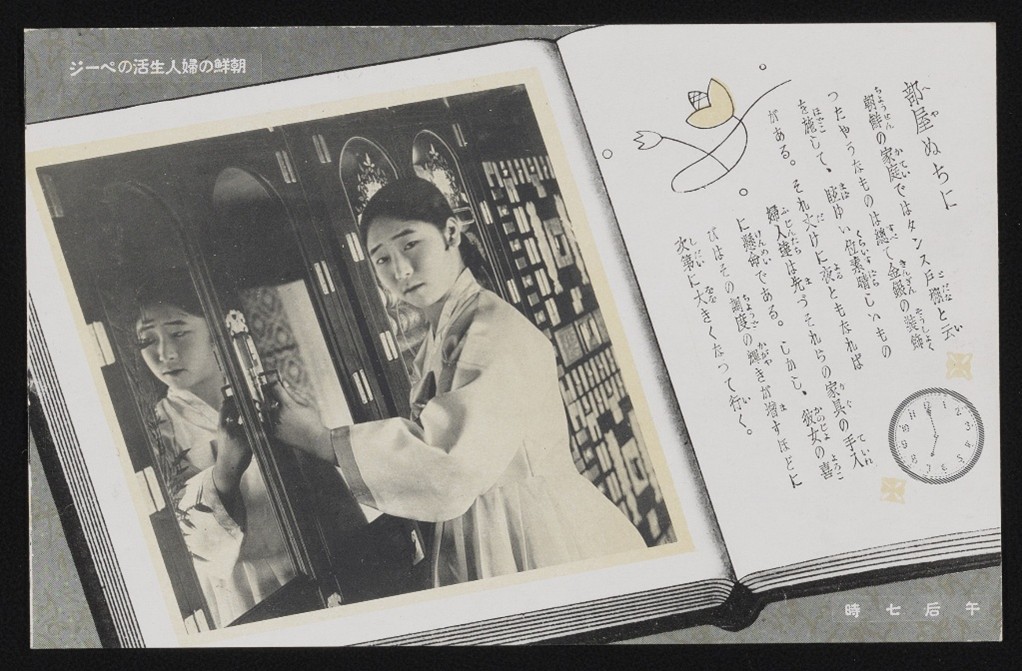 朝鮮の婦人生活のページ
部屋ぬちに
朝鮮の家庭ではタンス戸棚と云
つたやうなものは總て金銀の裝飾
を施して、眩ゆい位素晴しいもの
がある。それ丈けに夜ともなれば
婦人達は先づそれらの家具の手入
に懸命である。しかし、彼女の喜
びはその調度の輝きが增すほどに
次第に大きくなつて行く。
午后七時